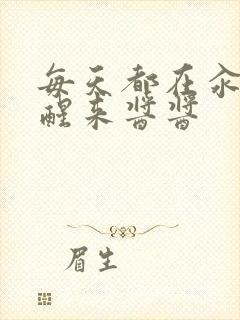 每天都在汆
醒来酱酱
眉生